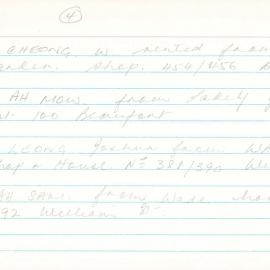 (4)
CHEONG W rented from
Shop. 454/456 B
AH MOW. from Lakely
100 Beaufort
LEONG Joshua from WA
Shop & House No 388/390 Wi
AH SAM. from Wade
92 William St.